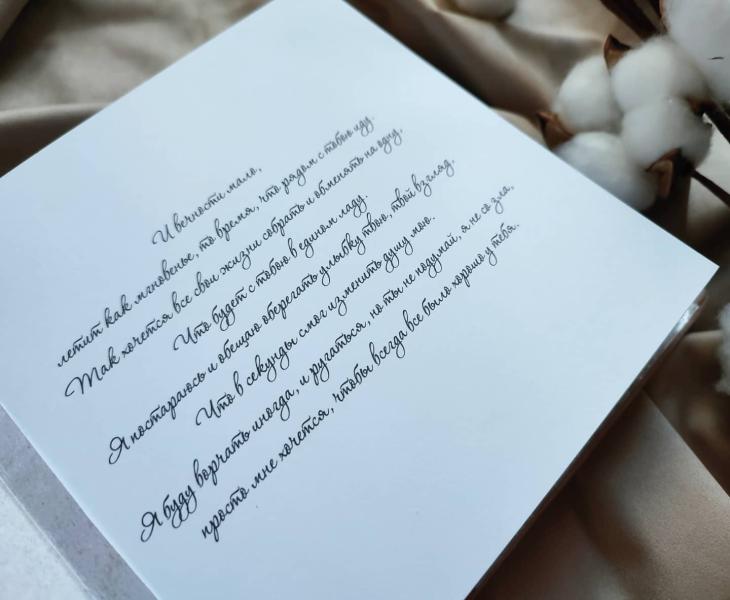 И вечности мало,
летит как мгновенье, то время, что рядом с тобою иду.
Так хочется все свои жизни собрать и обменять на одну,
Что будет с тобою в едином ладу.
Я постараюсь и обещаю оберегать улыбку твою, твой взгляд,
Что в секунды смог изменить душу мою.
Я буду ворчать иногда, и ругаться, но ты не подумай, я не со зла,
просто мне хочется, чтобы всегда все было хорошо у тебя.